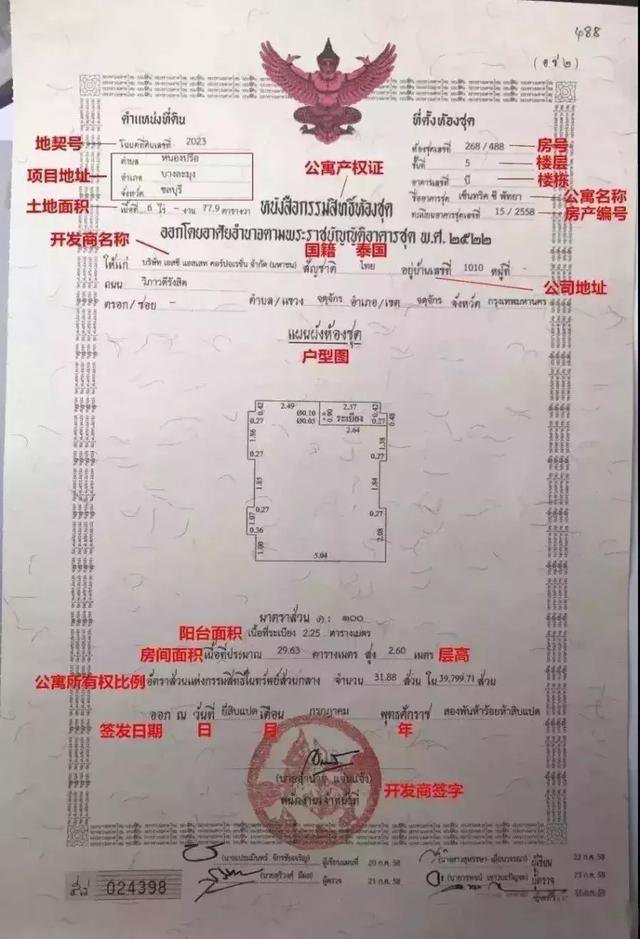 488
(อ.ช ๒)
ตำแหน่งที่ดิน
ที่ตั้งห้องชุด
地契号 โฉนดที่ดินเลขที่ 2023
ห้องชุดเลขที่ 268/488 房号
项目地址
ตำบล หนองปรือ
ชั้นที่ 5 楼层
อำเภอ บางละมุง
公寓产权证
อาคารเลขที่ บี 楼栋
จังหวัด ชลบุรี
ชื่ออาคารชุด เซ็นทริค ซี พัทยา 公寓名称
土地面积 เนื้อที่ 6 ไร่ - งาน 77.9 ตารางวา
หนังสือกรรมสิทธิ์ห้องชุด
ทะเบียนอาคารชุดเลขที่ 15/2558 房产编号
开发商名称
ออกโดยอาศัยอำนาจตามพระราชบัญญัติอาคารชุด พ.ศ. ๒๕๒๒
国籍 泰国
ให้แก่ บริษัท เอสซี แอสเสท คอร์ปอเรชั่น จำกัด (มหาชน) สัญชาติ ไทย อยู่บ้านเลขที่ 1010 หมู่ที่ -
ถนน วิภาวดีรังสิต
公司地址
ตรอก/ซอย - ตำบล/แขวง จตุจักร อำเภอ/เขต จตุจักร จังหวัด กรุงเทพมหานคร
แผนผังห้องชุด
户型图
2.49
2.37
0.42
0.42
0.27
Ø0.10
Ø0.05
0.90
ระเบียง
0.27
0.48
2.64
1.36
1.38
0.27
0.27
1.85
1.84
0.27
0.27
1.07
0.36
2.08
1.00
5.04
มาตราส่วน ๑ : ๑๐๐
阳台面积 เนื้อที่ระเบียง 2.25 ตารางเมตร
房间面积 เนื้อที่ประมาณ 29.63 ตารางเมตร สูง 2.60 เมตร 层高
公寓所有权比例 อัตราส่วนแห่งกรรมสิทธิ์ในทรัพย์ส่วนกลาง จำนวน 31.88 ส่วน ใน 39,799.71 ส่วน
ออก ณ วันที่ ยี่สิบแปด เดือน กรกฎาคม พุทธศักราช สองพันห้าร้อยห้าสิบแปด
签发日期 日 月 年
开发商签字
พนักงานเจ้าหน้าที่
ผู้เขียนแผนที่ 20 ก.ค. 58
ผู้เขียน 22 ก.ค. 58
ผู้ตรวจ 21 ก.ค. 58
ผู้ตรวจ 23 ก.ค. 58
024398